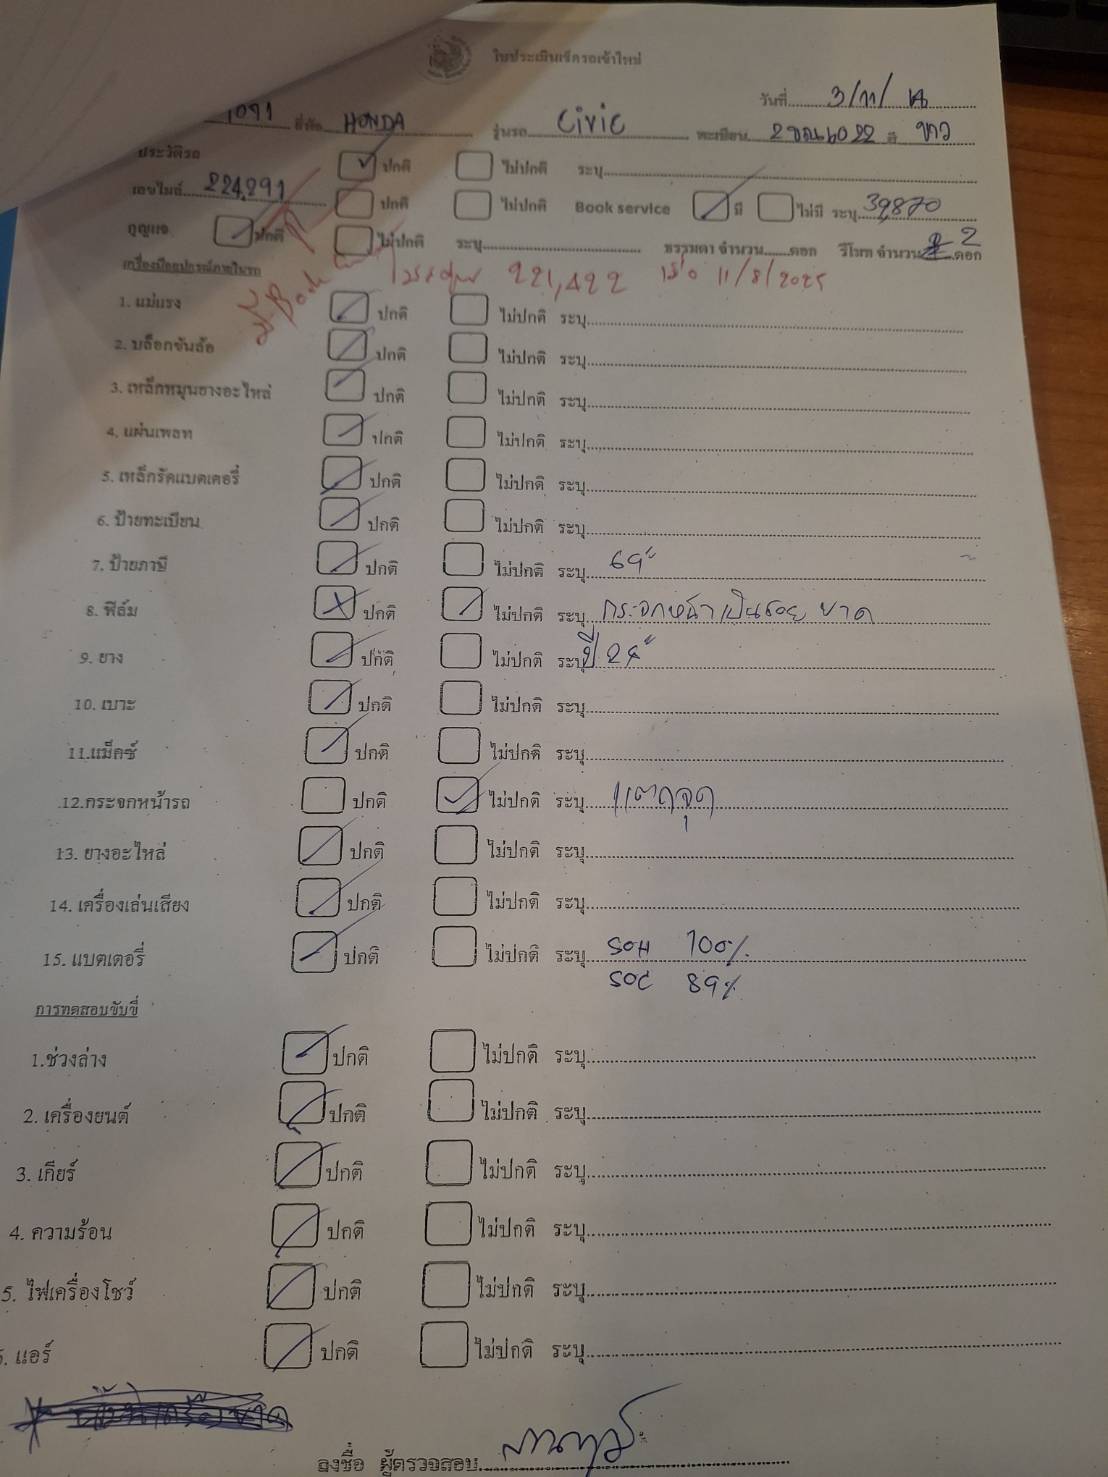 ใบประเมินเช็ครถเข้าใหม่
วันที่ 3/11/
1091 ยี่ห้อ HONDA รุ่นรถ Civic ทะเบียน 6022 สี ขาว
ประวัติรถ ปกติ ไม่ปกติ ระบุ
เลขไมล์ 224,291 ปกติ ไม่ปกติ Book service มี ไม่มี ระบุ 39,870
กุญแจ ปกติ ไม่ปกติ ระบุ ธรรมดา จำนวน ดอก รีโมท จำนวน 2 ดอก
เครื่องมืออุปกรณ์ภายในรถ
มี Book 221,422 11/8/2025
1. แม่แรง ปกติ ไม่ปกติ ระบุ
2. บล็อกขันล้อ ปกติ ไม่ปกติ ระบุ
3. เหล็กหมุนยางอะไหล่ ปกติ ไม่ปกติ ระบุ
4. แผ่นเพลท ปกติ ไม่ปกติ ระบุ
5. เหล็กรัดแบตเตอรี่ ปกติ ไม่ปกติ ระบุ
6. ป้ายทะเบียน ปกติ ไม่ปกติ ระบุ
7. ป้ายภาษี ปกติ ไม่ปกติ ระบุ 69
8. ฟิล์ม ปกติ ไม่ปกติ ระบุ กระจกหน้าเป็นรอย ขาด
9. ยาง ปกติ ไม่ปกติ ระบุ ปี 24
10. เบาะ ปกติ ไม่ปกติ ระบุ
11.แม็คซ์ ปกติ ไม่ปกติ ระบุ
12.กระจกหน้ารถ ปกติ ไม่ปกติ ระบุ แตกจุด
13. ยางอะไหล่ ปกติ ไม่ปกติ ระบุ
14. เครื่องเล่นเสียง ปกติ ไม่ปกติ ระบุ
15. แบตเตอรี่ ปกติ ไม่ปกติ ระบุ SOH 100%
SOC 89%
การทดสอบขับขี่
1.ช่วงล่าง ปกติ ไม่ปกติ ระบุ
2. เครื่องยนต์ ปกติ ไม่ปกติ ระบุ
3. เกียร์ ปกติ ไม่ปกติ ระบุ
4. ความร้อน ปกติ ไม่ปกติ ระบุ
5. ไฟเครื่องโชว์ ปกติ ไม่ปกติ ระบุ
. แอร์ ปกติ ไม่ปกติ ระบุ
ลงชื่อ ผู้ตรวจสอบ